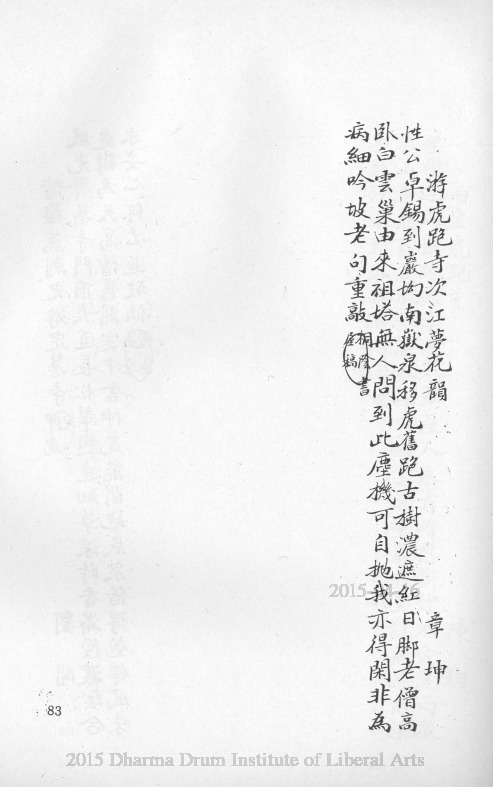 游虎跑寺次江夢花韻 章坤
性公卓錫到巖坳南嶽泉移虎舊跑古樹濃遮紅日脚老僧高
卧白雲巢由來祖塔無人問到此塵機可自拋我亦得閑非為
病細吟坡老句重敲
桐陰書
屋稿
83
2015 Dharma Drum Institute of Liberal Arts